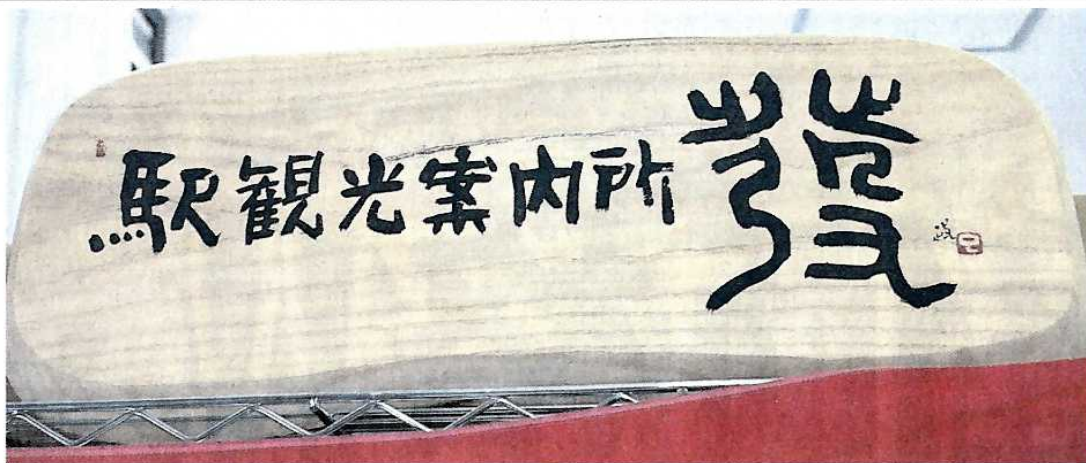 駅観光案内所 發